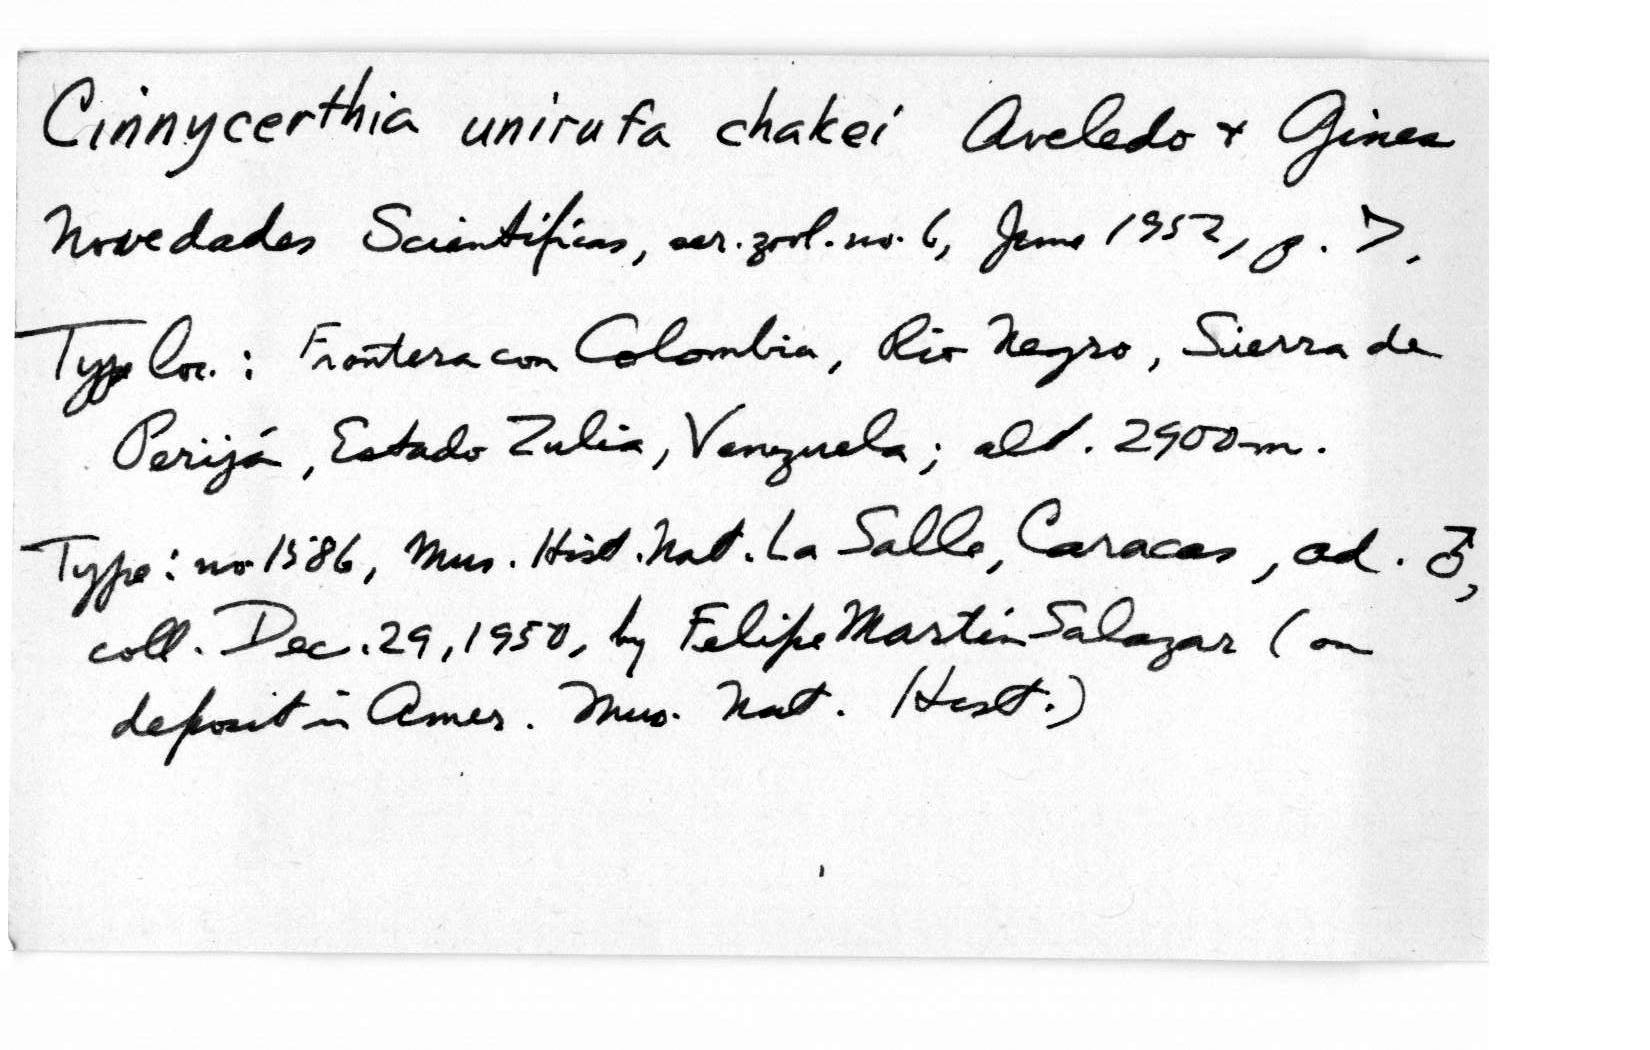 Cinnycerthia unirufa chakei Aveledo + Gines
Novedades Scientificas, ser. zool. no. 6, June 1952, p. 7.
Type loc.: Frontera con Colombia, Rio Negro, Sierra de
Perijá, Estado Zulia, Venezuela; alt. 2900 m.
Type: no 1586, Mus. Hist. Nat. La Salle, Caracas, ad. ♂,
coll. Dec. 29, 1950, by Felipe Martin Salazar (on
deposit in Amer. Mus. Nat. Hist.)